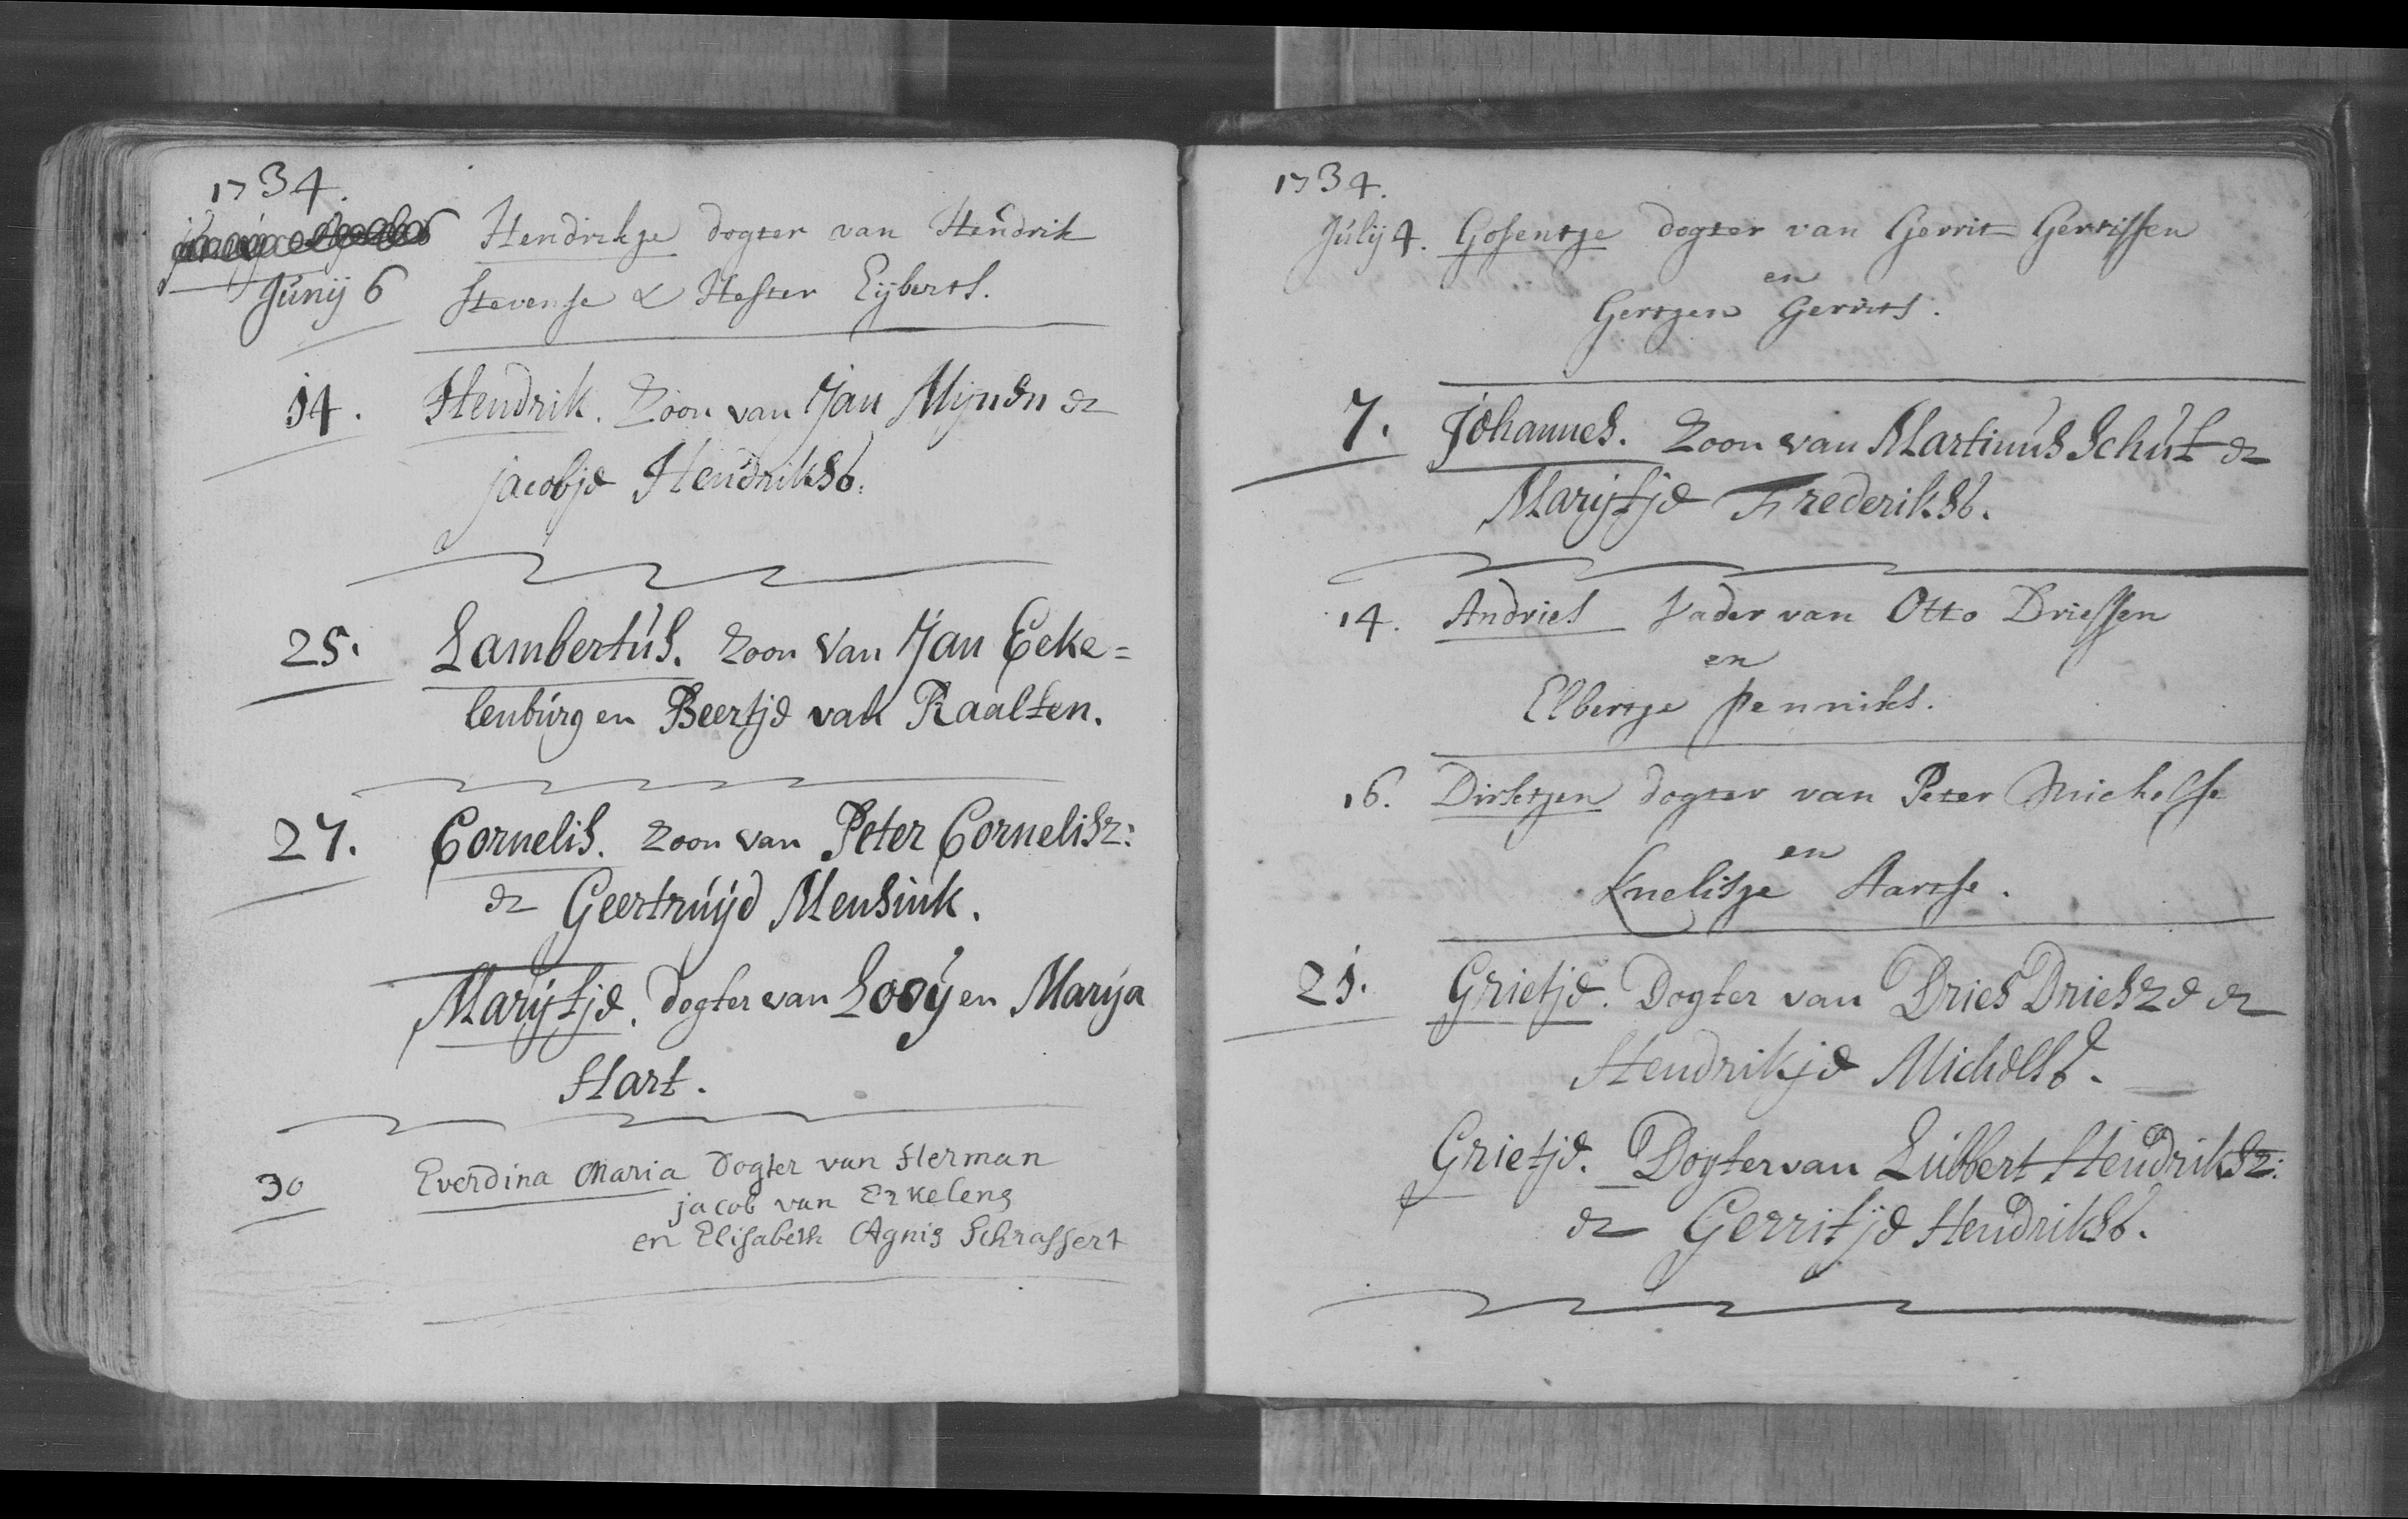 1734.
Hendrikje dogter van Hendrik
Junij 6 Stevense & Hester Eijberts.
14. Hendrik. Zoon van Jan Mijnsn en
jacobje Hendriksd.
25. Lambertus. Zoon van Jan Eeke=
lenburg en Beertje van Raalten.
27. Cornelis. Zoon van Peter Cornelisz:
en Geertruijd Mensink.
Marijtje. dogter van Looij en Marija
Hart.
30 Everdina Maria Dogter van Herman
jacob van Erkelens
en Elisabeth Agnis Schrassert
1734.
Julij 4. Gosentje dogter van Gerrit Gerrissen
en
Gertjen Gerrits.
7. Johannes. Zoon van Martinus Schut en
Marijtje Frederiksd.
14. Andries Vader van Otto Driessen
en
Elbertje Penniks.
16. Dirktjen dogter van Peter Michelse
en
Knelisje Aartse.
21. Grietje. Dogter van Dries Driesze en
Hendrikje Michelsd.
Grietje. Dogter van Lubbert Hendriksz:
en Gerritje Hendriksd.